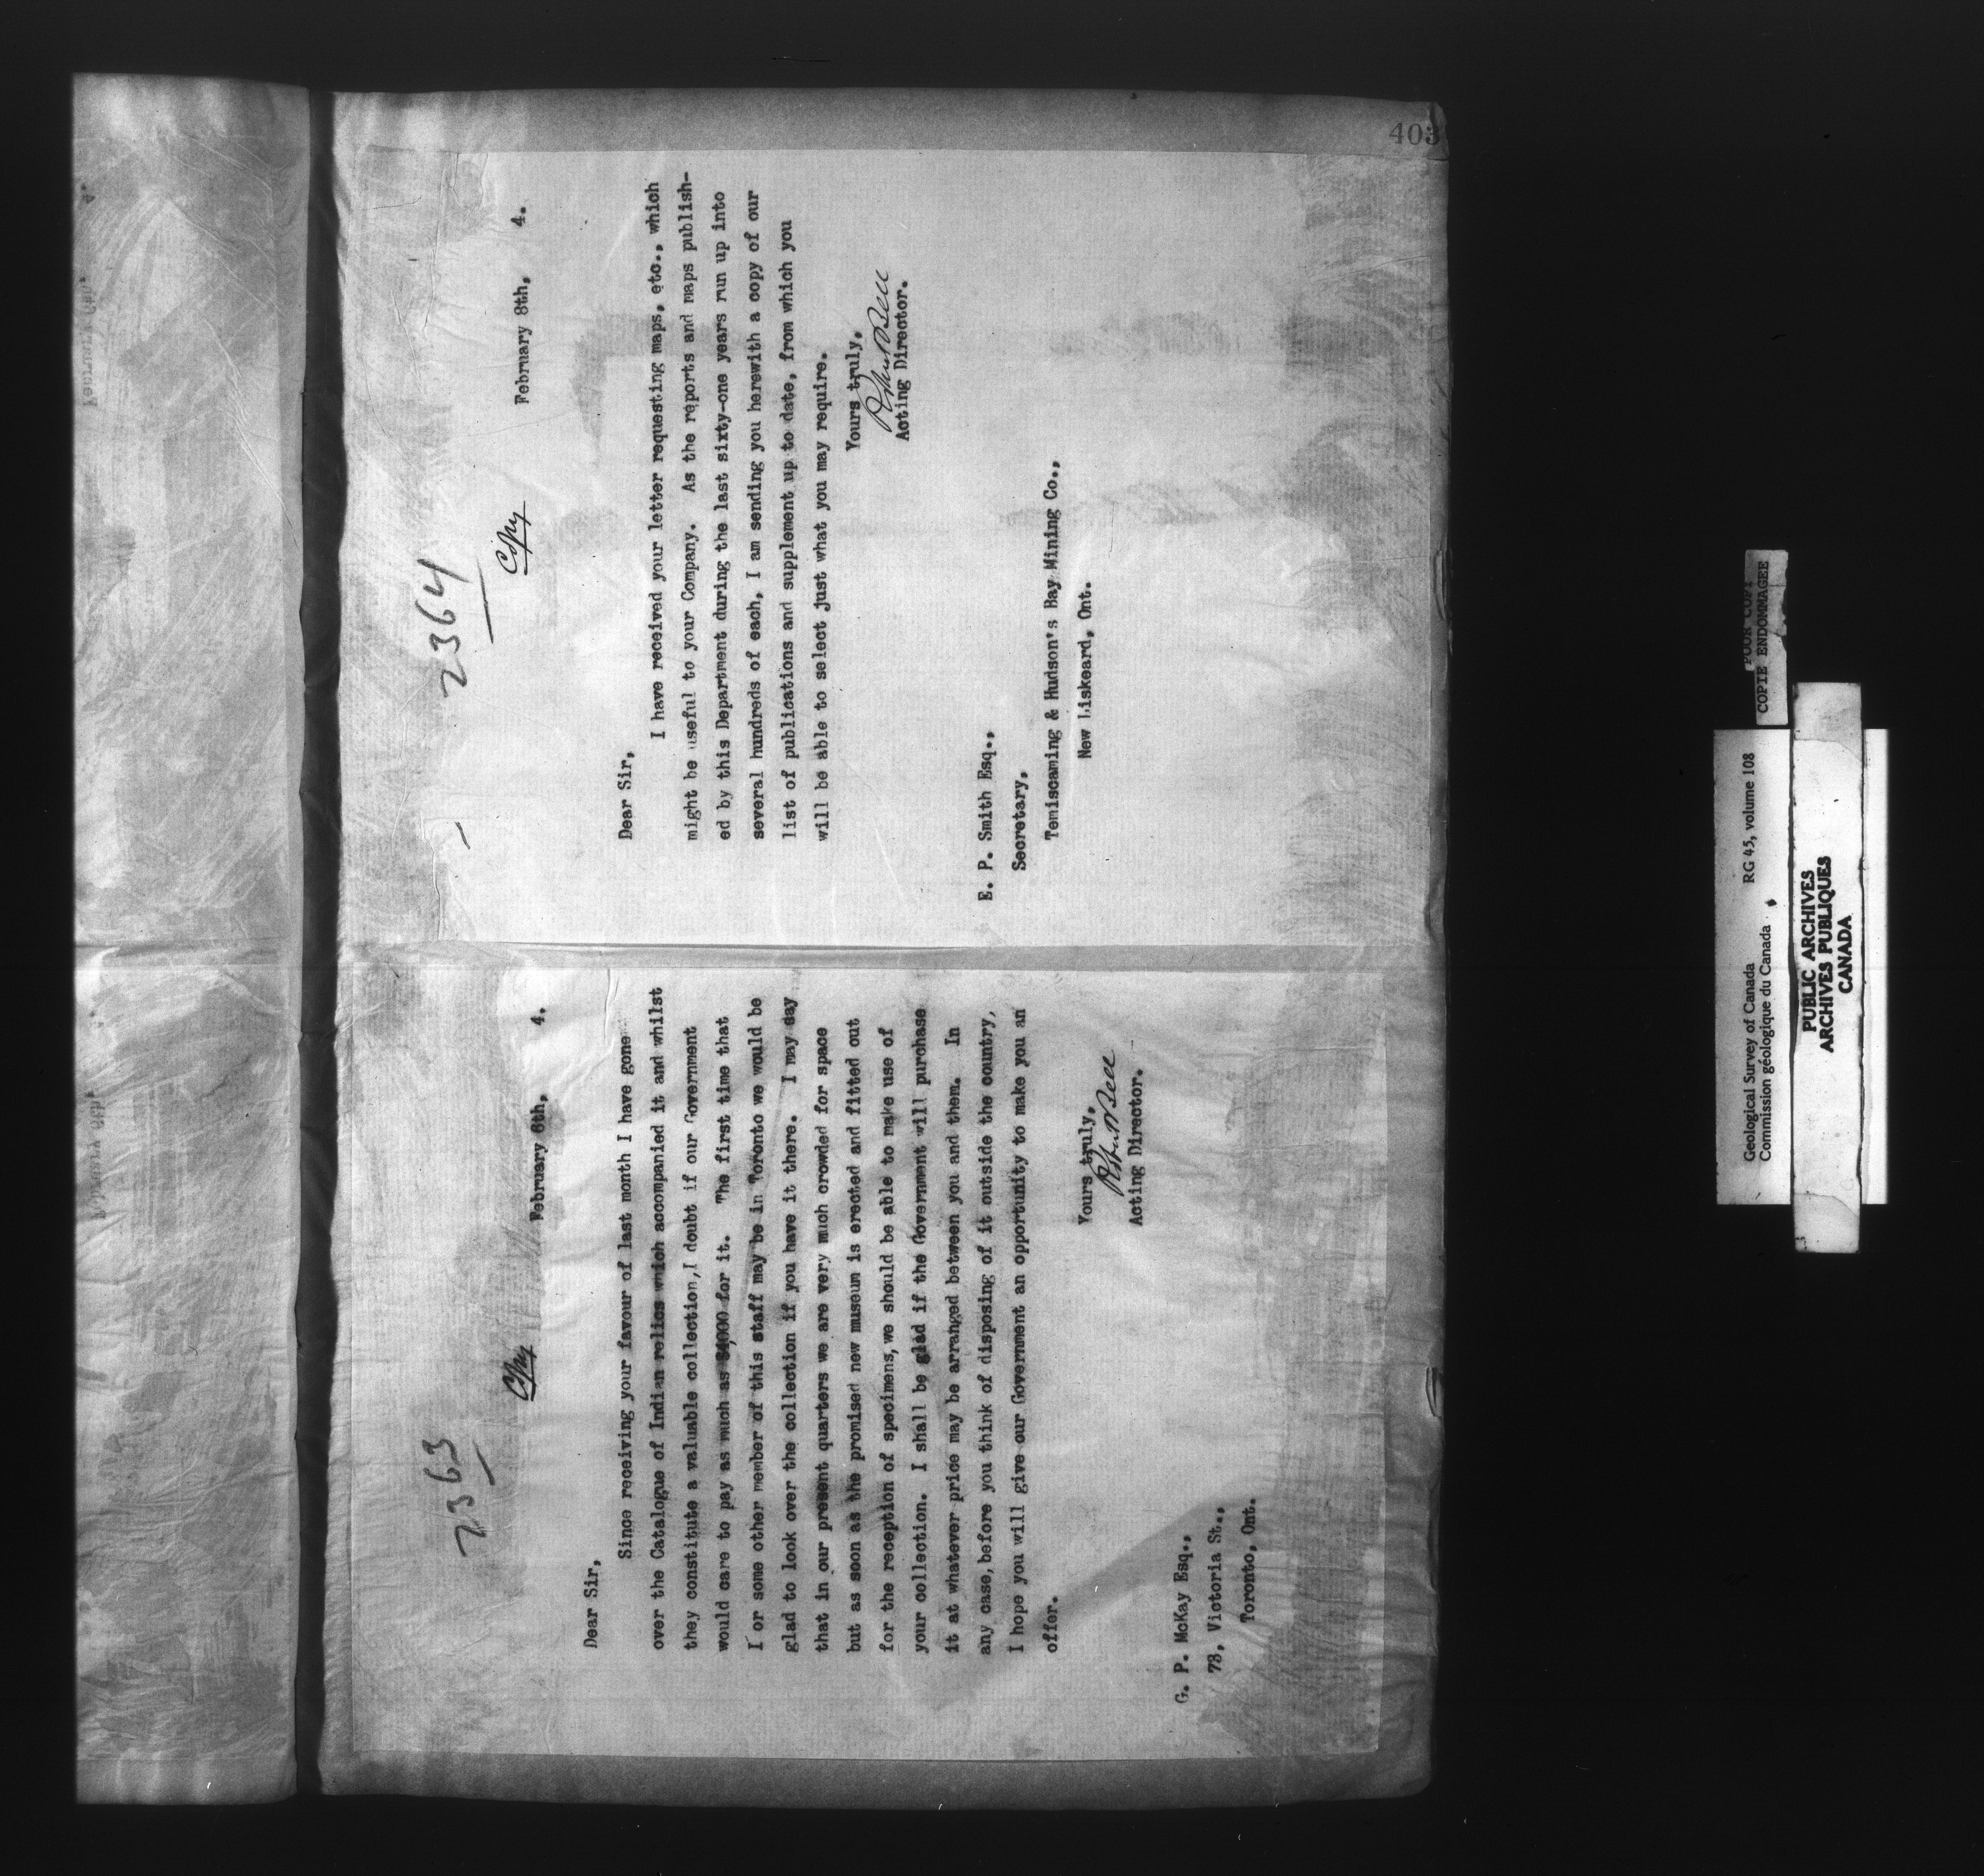 403
2363
Copy
February 6th, 4.
Dear Sir,
Since receiving your favour of last month I have gone
over the Catalogue of Indian relics which accompanied it and whilst
they constitute a valuable collection, I doubt if our Government
would care to pay as much as $4000 for it. The first time that
I or some other member of this staff may be in Toronto we would be
glad to look over the collection if you have it there. I may say
that in our present quarters we are very much crowded for space
but as soon as the promised new museum is erected and fitted out
for the reception of specimens, we should be able to make use of
your collection. I shall be glad if the Government will purchase
it at whatever price may be arranged between you and them. In
any case, before you think of disposing of it outside the country,
I hope you will give our Government an opportunity to make you an
offer.
Yours truly,
Robert Bell
Acting Director.
G. P. McKay Esq.,
73, Victoria St.,
Toronto, Ont.
2364
Copy
February 8th, 4.
Dear Sir,
I have received your letter requesting maps, etc., which
might be useful to your Company. As the reports and maps publish-
ed by this Department during the last sixty-one years run up into
several hundreds of each, I am sending you herewith a copy of our
list of publications and supplement up to date, from which you
will be able to select just what you may require.
Yours truly,
Robert Bell
Acting Director.
E. P. Smith Esq.,
Secretary,
Temiscaming & Hudson's Bay Mining Co.,
New Liskeard, Ont.
Geological Survey of Canada RG 45, volume 108
Commission géologique du Canada
PUBLIC ARCHIVES
ARCHIVES PUBLIQUES
CANADA
POOR COPY
COPIE ENDOMMAGEE